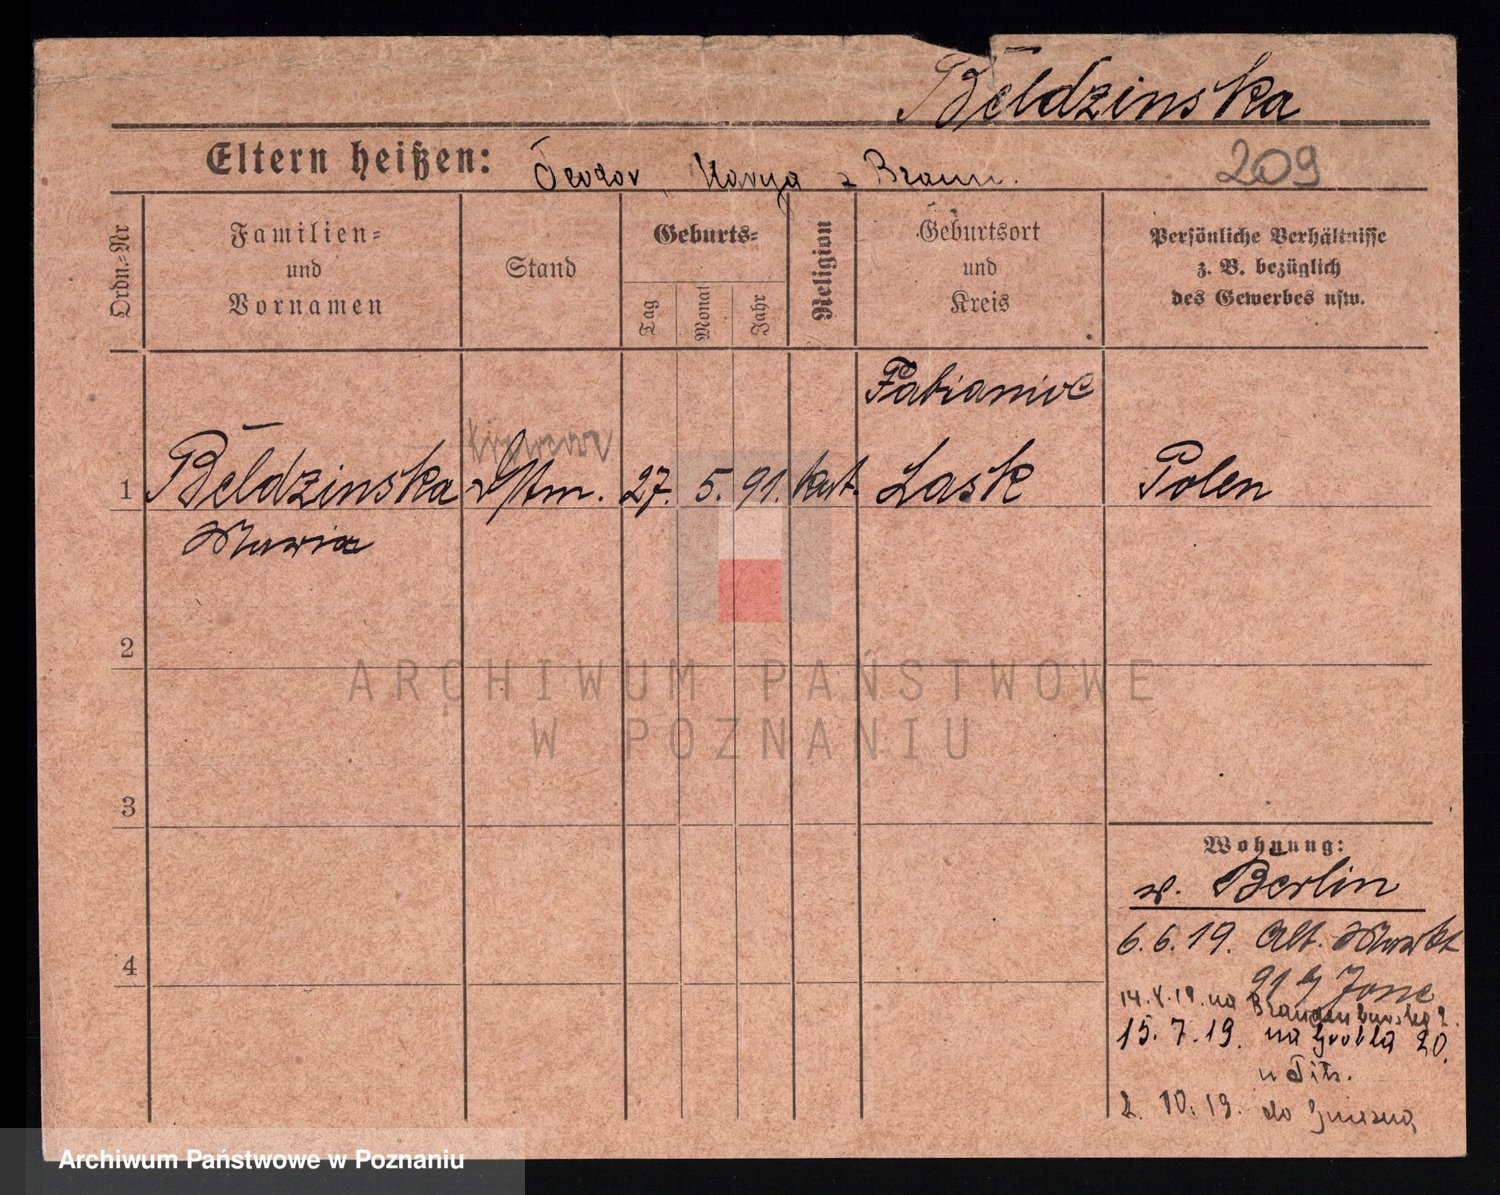 Beldzinska
Eltern heißen: Teodor, Marya z Braun.
209
Ordn.=Nr
Familien=
und
Vornamen
Stand
Geburts=
Tag
Monat
Jahr
Religion
Geburtsort
und
Kreis
Persönliche Verhältnisse
z. B. bezüglich
des Gewerbes usw.
Pabianice
1 Beldzinska 27. 5. 91. kat. Lask Polen
Maria
2
3
4
Wohnung:
v. Berlin
6.6.19. Alt. Markt
91
14.8.19. na Brandenburska 2.
15.7.19. na Grobla 20.
u
2. 10. 19. do Gniezna
ARCHIWUM PAŃSTWOWE
W POZNANIU
Archiwum Państwowe w Poznaniu